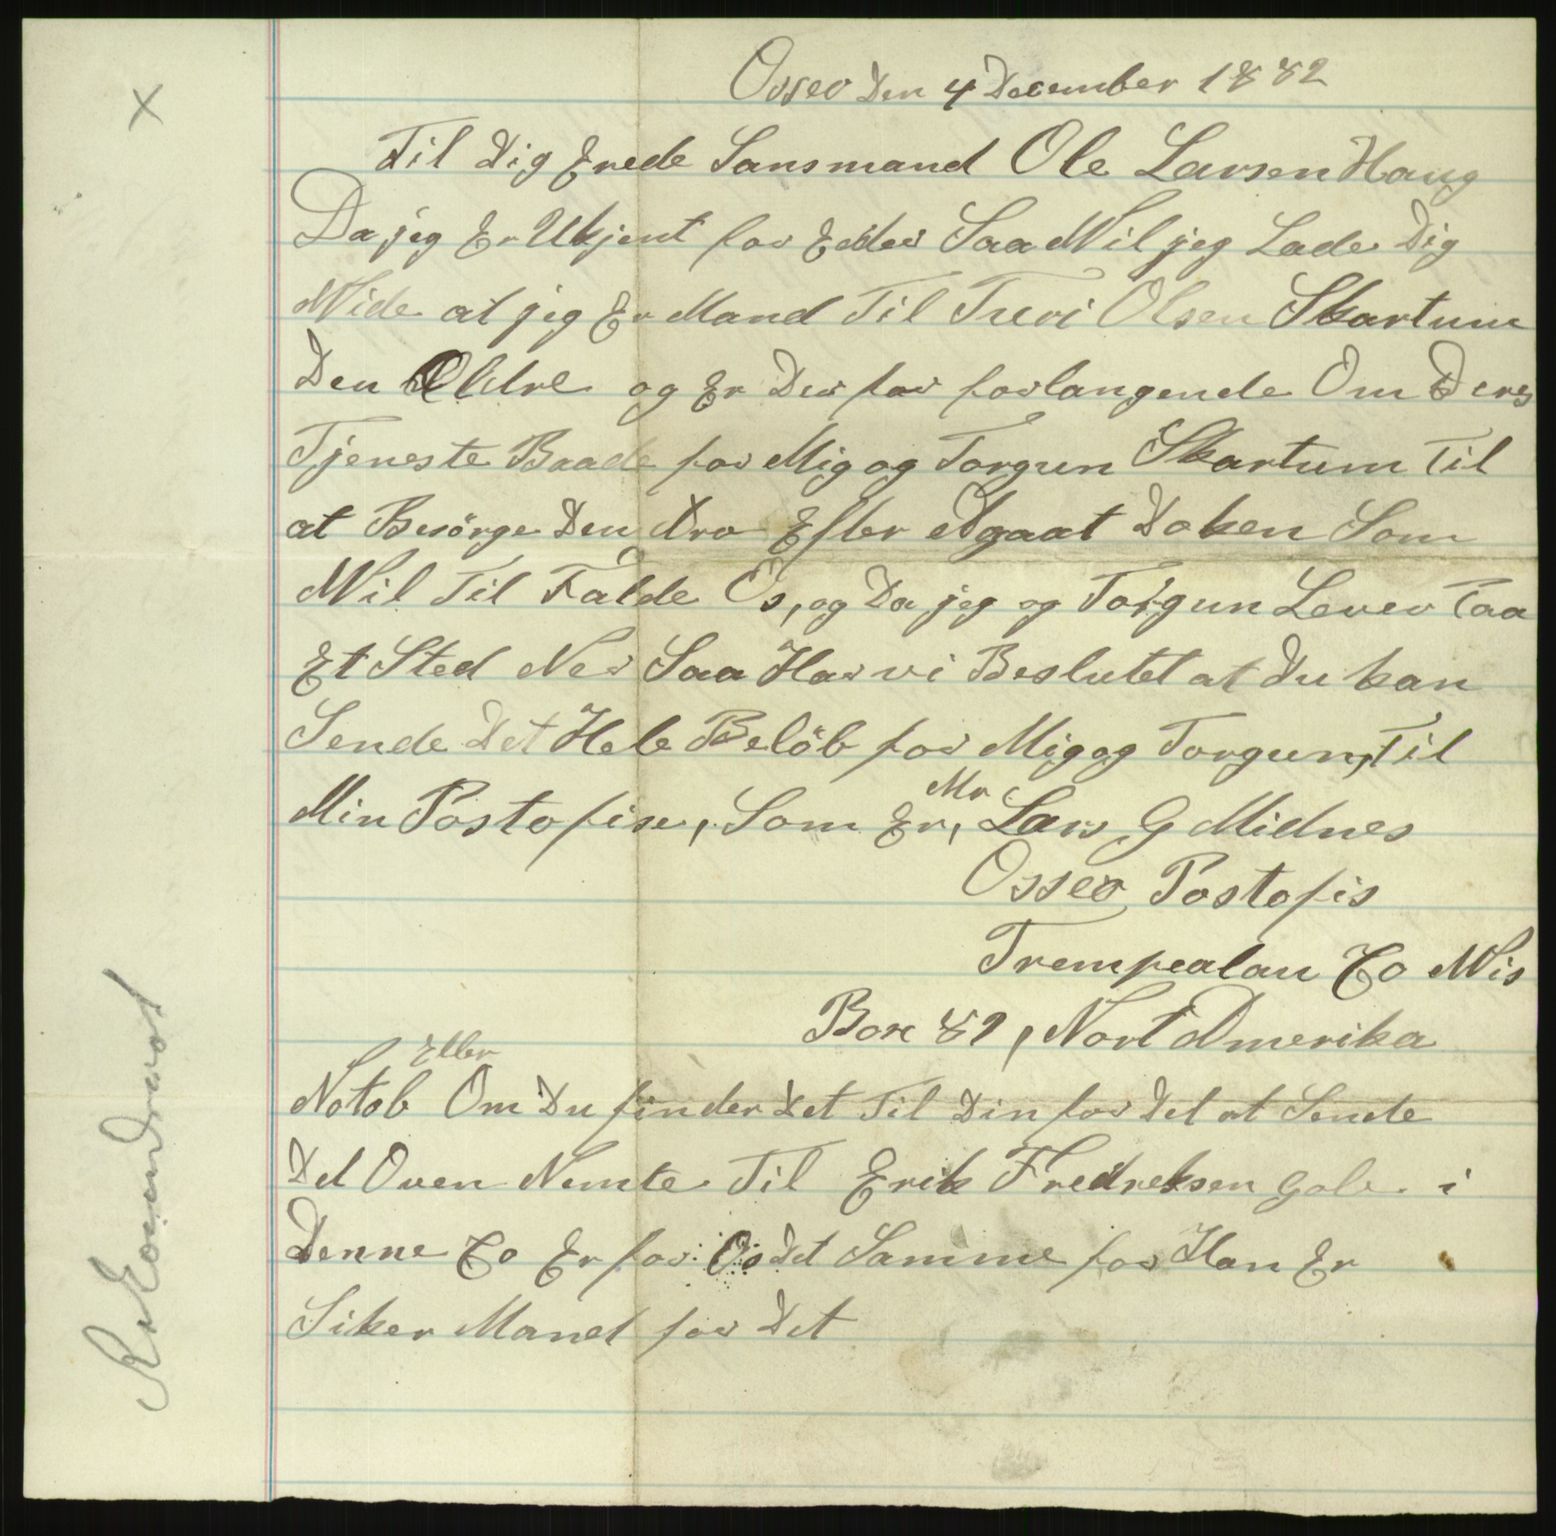 Osseo Den 4 December 1882
Til Dig Erede Lansmand Ole Larsen Haug
Da jeg Er Ukjent for Eder Saa Wil jeg Lade Dig
Wide at jeg Er Mand Til Turi Olsen Skartum
Den Eldre og Er Der for forlangende Om Deres
Tjeneste Baade for Mig og Torgun Skartum Til
at Besörge Den Arv Efter Afgaat Doken Som
Wil Til Falde Os, og Da jeg og Torgun Lever Paa
Et Sted Ner Saa Har vi Beslutet at Du kan
Sende Det Hele Belöb for Mig og Torgun, Til
Min Postofise, Som Er, Mr Lars G Midnes
Osseo Postofis
Trempealau Co Wis
Box 89, Nort Amerika
Notab Eller Om Du finder Det Til Din for Del at Sende
Det Oven Nemte Til Erik Fredreksen Gole i
Denne Co Er for Os Det Samme for Han Er
Siker Mand for Det
x